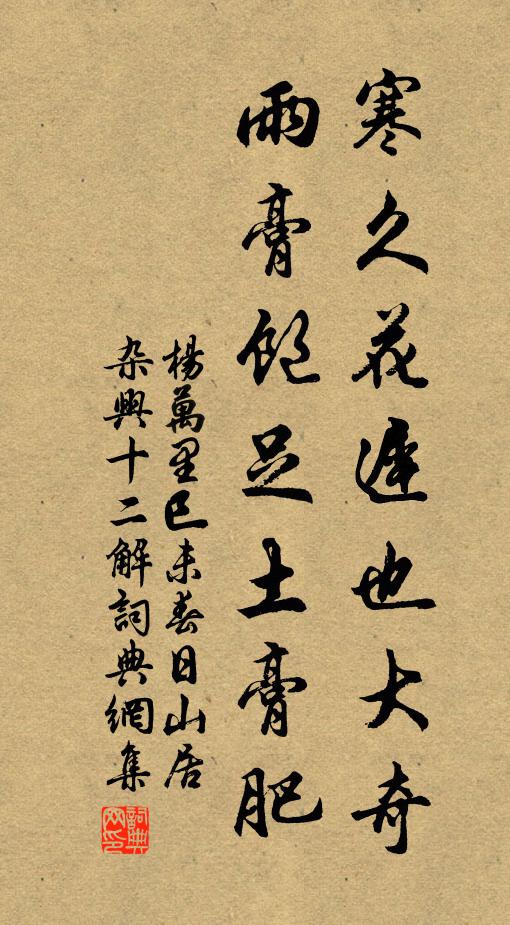 寒久花遲也大奇
雨膏飽足土膏肥
楊萬里己未春日山居
杂興十二解詞典網集
詞典網印